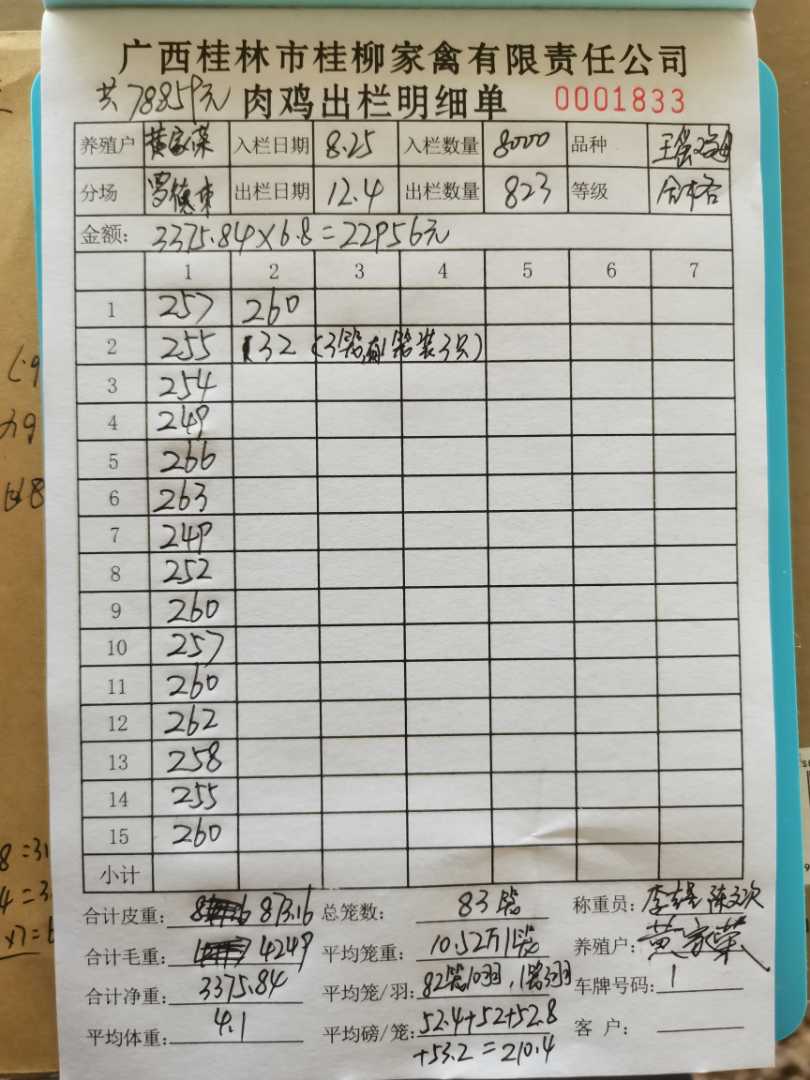 广西桂林市桂柳家禽有限责任公司
共78859元 肉鸡出栏明细单 0001833
养殖户 黄家荣 入栏日期 8.25 入栏数量 8000 品种
分场 出栏日期 12.4 出栏数量 823 等级
金额: 3375.84×6.8=22956元
1 2 3 4 5 6 7
1 257 260
2 255 132 (3笼,有1笼装3只)
3 254
4 249
5 266
6 263
7 249
8 252
9 260
10 257
11 260
12 262
13 258
14 255
15 260
小计
合计皮重: 873.16 总笼数: 83笼 称重员:
合计毛重: 4249 平均笼重: 10.52 养殖户: 黄家荣
合计净重: 3375.84 平均笼/羽: 82笼10羽,1笼3羽 车牌号码: 1
平均体重: 4.1 平均磅/笼: 52.4+52+52.8 客户:
+53.2=210.4